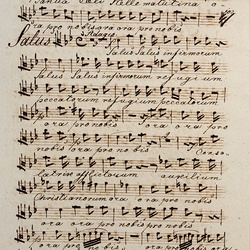 Janua Cæli Stella matutina o
ra pro nobis ora pro nobis
Adagio
Salus Salus Salus infirmorum
Salus Salus infirmorum refugium
peccatorum refugium peccatorum
ora pro nobis ora ora pro
nobis ora pro nobis Conso
latrix afflictorum auxilium
Christianorum ora ora pro nobis
ora ora pro nobis ora pro nobis